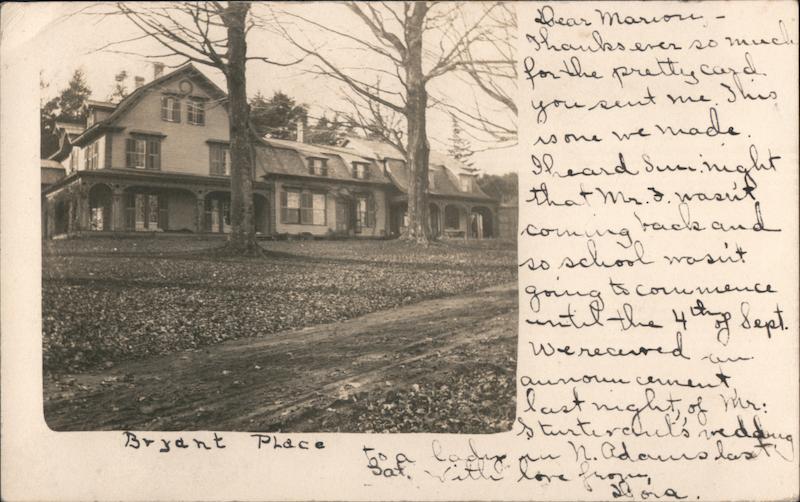 Dear Marion, -
Thanks ever so much
for the pretty card
you sent me. This
is one we made.
I heard Sun. night
that Mr. F. wasn't
coming back and
so school wasn't
going to commence
until the 4th of Sept.
We received an
announcement,
last night, of Mr.
Sturtevant's wedding
to a lady in N. Adams last
Sat. With love from,
Dora.
Bryant Place